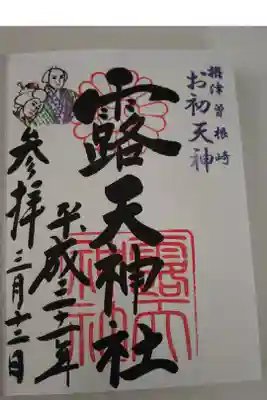 摂津曽根崎
お初天神
露天神社
平成三十一年
三月十二日
参拝